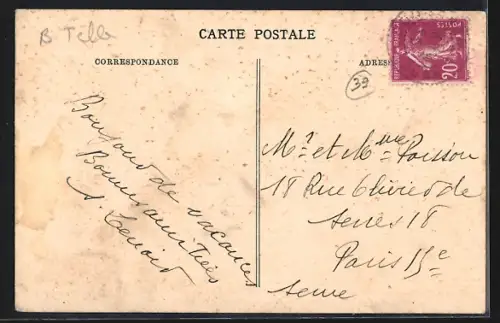 B Telle
CARTE POSTALE
CORRESPONDANCE
ADRESS
39
POSTES
REPUBLIQUE FRANÇAISE
20c
Bonjour de vacances
Bonnes amitiés
Lenoir
Mr et Mme Poisson
18 Rue Olivier de
Serres 18
Paris 15e
Seine